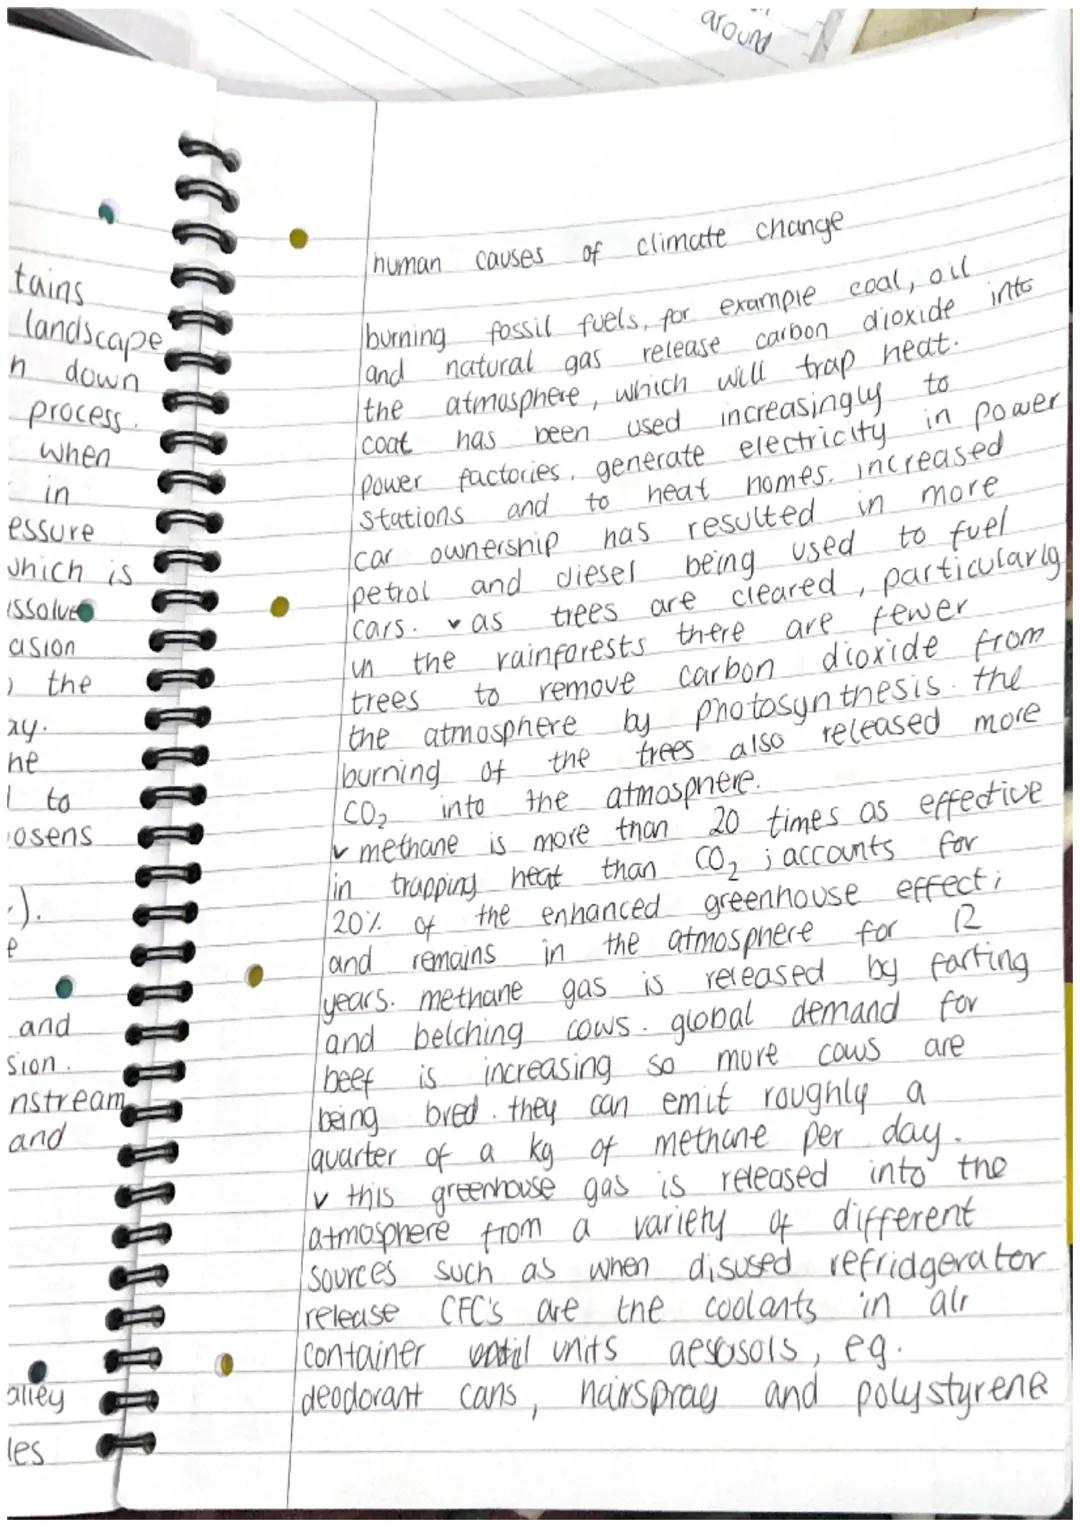 around
human causes of climate change
burning fossil fuels, for example coal, oil
and natural gas release carbon dioxide into
the atmosphere, which will trap heat.
coal has been used increasingly to
power factories, generate electricity in power
stations and to heat homes. increased
car ownership has resulted in more
petrol and diesel being used to fuel
cars. v as trees are cleared, particularly
in the rainforests there are fewer
trees to remove carbon dioxide from
the atmosphere by photosynthesis. the
burning of the trees also released more
CO₂ into the atmosphere.
v methane is more than 20 times as effective
in trapping heat than CO₂; accounts for
20% of the enhanced greenhouse effect;
and remains in the atmosphere for 12
years. methane gas is released by farting
and belching cows. global demand for
beef is increasing so more cows are
being bred. they can emit roughly a
quarter of a kg of methane per day.
v this greenhouse gas is released into the
atmosphere from a variety of different
sources such as when disused refridgerator
release CFC's are the coolants in air
container units aesosols, eg.
deodorant cans, hairspray and polystyrene
tains
landscape
n down
process.
when
in
essure
which is
issolve
asion
the
ay.
he
to
osens
).
e
and
sion.
nstream
and
alley
les